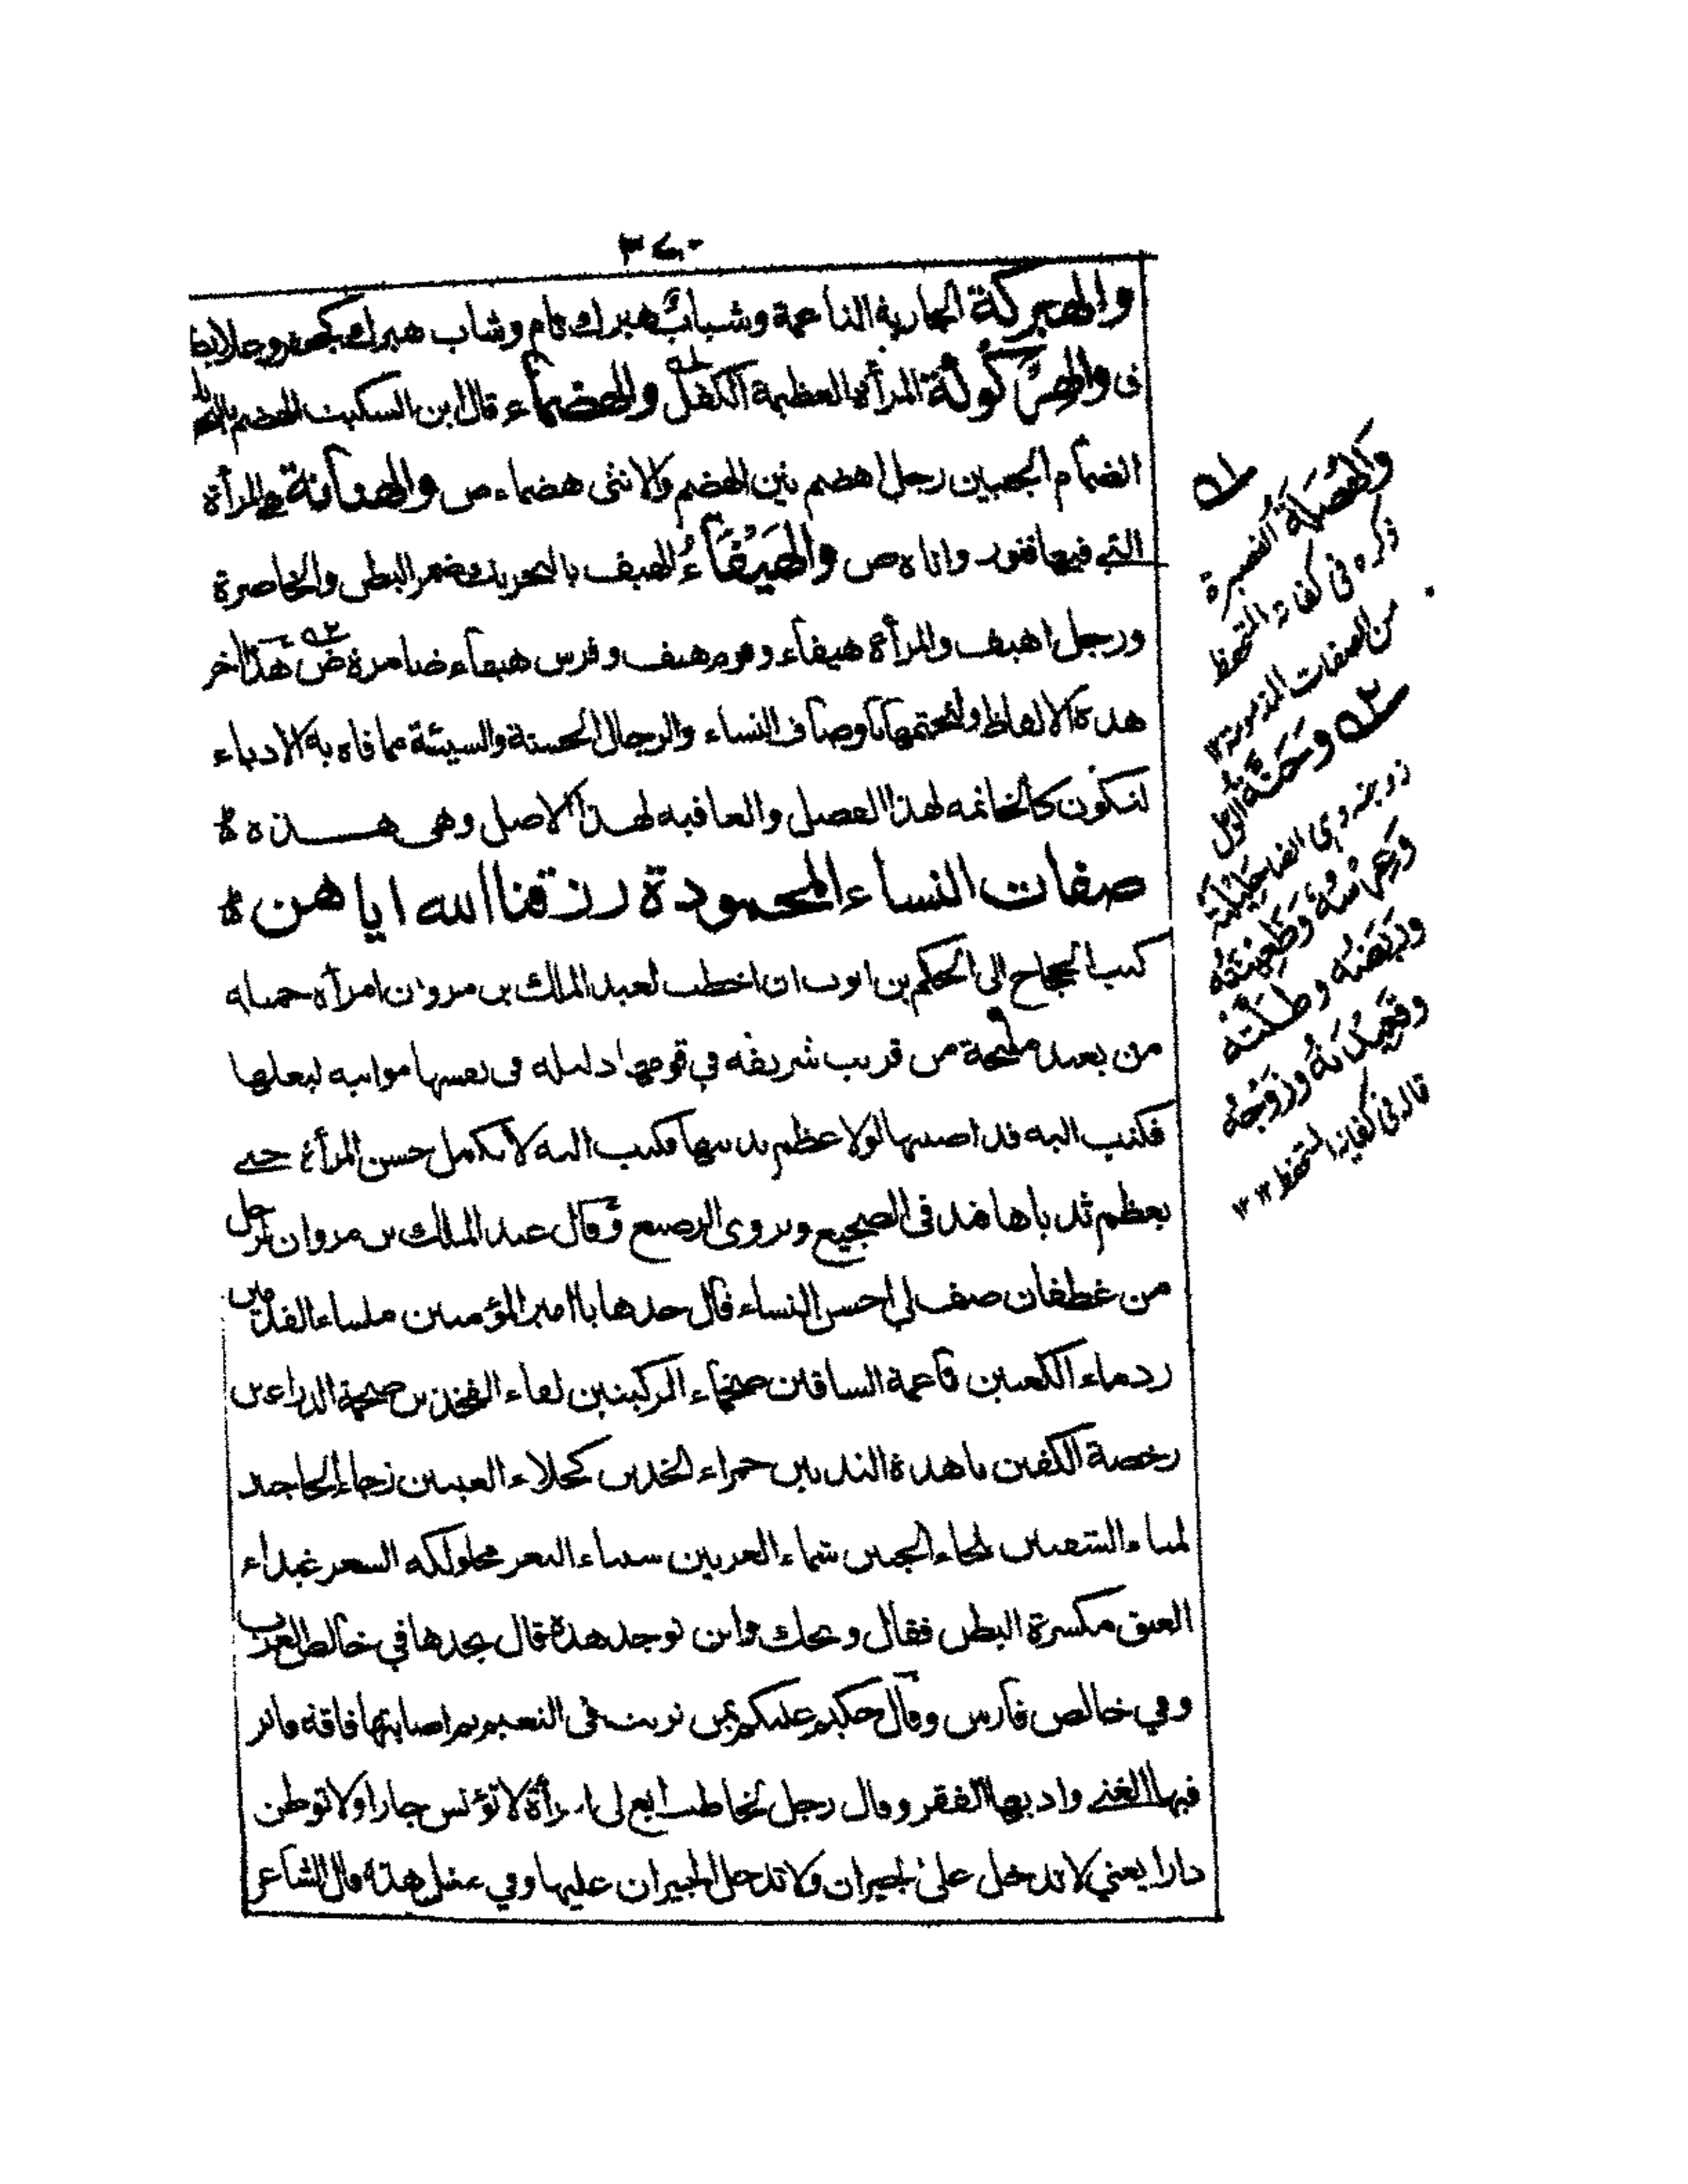 ٣٤٠
والهبركة الجارية الناعمة وشباب هبرك تام وشاب هبرك كجعفر وعلابط
ق والهركولة المرأة العظيمة الكفل والهضماء قال ابن السكيت الهضم
انضمام الجنبين رجل اهضم بين الهضم والانثى هضماء ص والهنانة هي المرأة
التي فيها فتور واناة ص والهيفاء الهيف بالتحريك ضمر البطن والخاصرة
ورجل اهيف والمرأة هيفاء وقوم هيف وفرس هيفاء ضامرة ض هذا اخر
هذة الالفاظ ولنختمها باوصاف النساء والرجال الحسنة والسيئة مما فاه به الادباء
لتكون كالخاتمه لهذا الفصل والعاقبه لهذا الاصل وهي هذه
صفات النساء المحمودة رزقنا الله اياهن
كتب الحجاج الى الحكم بن ايوب ان اخطب لعبد الملك بن مروان امرأة جميله
من بعيد مليحة من قريب شريفه في قومها ذليله في نفسها مواتيه لبعلها
فكتب اليه قد اصبتها لولا عظم ثدييها فكتب اليه لا يكمل حسن المرأة حتى
يعظم ثدياها فتدفى الضجيع وتروى الرضيع وقال عبد الملك بن مروان لرجل
من غطفان صف لي احسن النساء قال خذها يا امير المؤمنين ملساء القدمين
ردماء الكعبين ناعمة الساقين ضخماء الركبتين لفاء الفخذين ضخمة الذراعين
رخصة الكفين ناهدة الثديين حمراء الخدين كحلاء العينين زجاء الحاجبين
لمياء الشفتين بلجاء الجبين شماء العرنين شنباء الثغر محلولكه الشعر غيداء
العنق مكسرة البطن فقال ويحك واين توجد هذة قال تجدها في خالص العرب
وفي خالص فارس وقال حكيم عليكم بمن تربت في النعيم ثم اصابتها فاقة فاثر
فيها الغنى وادبها الفقر وقال رجل لخاطب ابغ لي امرأة لا تؤنس جارا ولا توطن
دارا يعني لا تدخل على الجيران ولا تدخل الجيران عليها وفي مثل هذة قال الشاعر
ذكره في كفاية المتحفظ
من الصفات المذمومة ١٢
وعرسه وظعينته
وربضه وطلته
وقعيدته وزوجه
قاله في كفاية المتحفظ ١٢